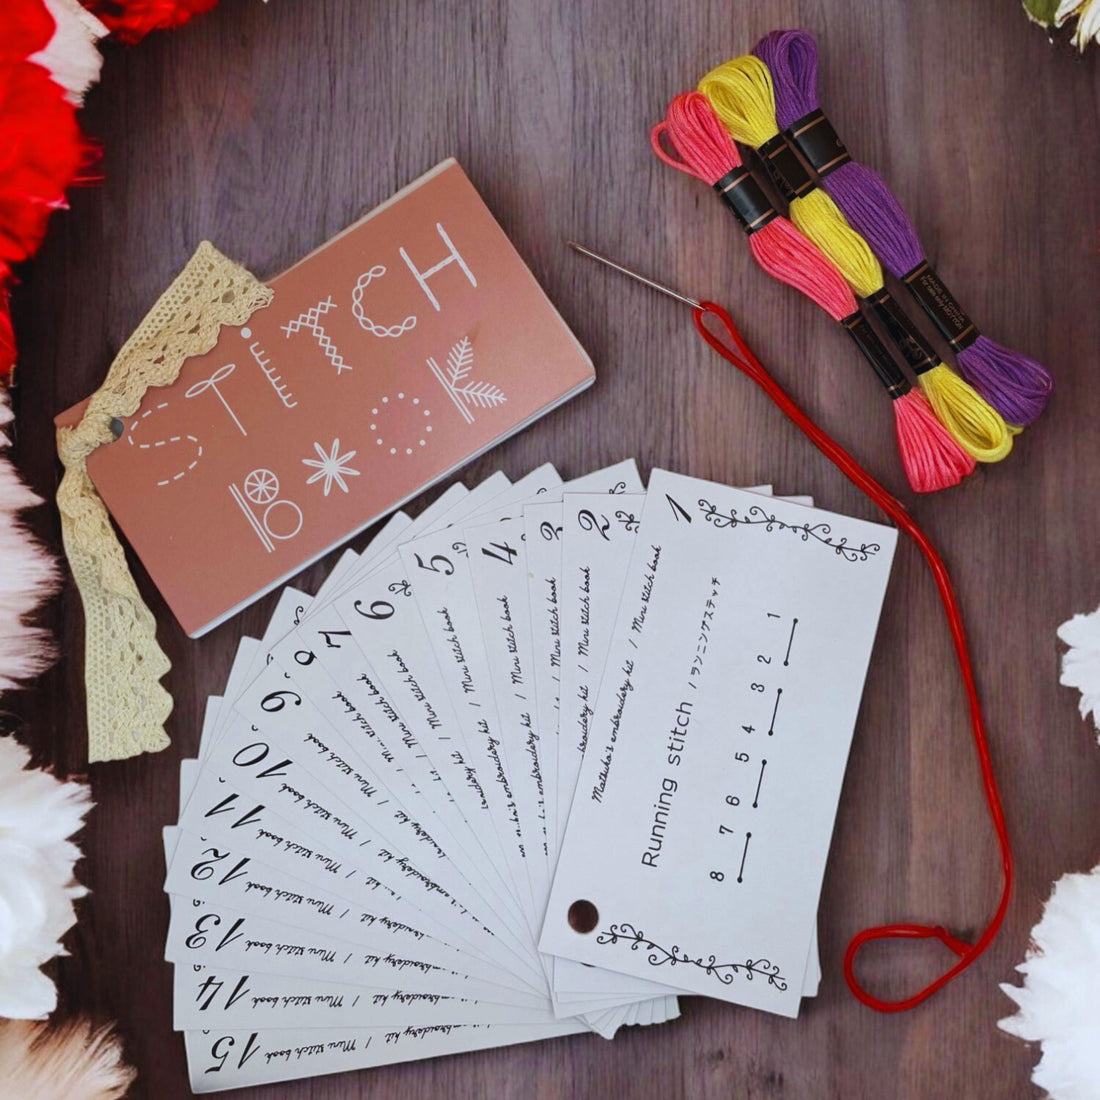 STiTCH
BOOK
MADE IN CHINA
1
Maiuko's embroidery kit / Mini stitch book
Running stitch / ランニングステッチ
1
2
3
4
5
6
7
8
2
broidery kit / Mini stitch book
3
embroidery kit / Mini stitch book
4
embroidery kit / Mini stitch book
5
broidery kit / Mini stitch book
6
kit / Mini stitch book
7
/ Mini stitch book
8
/ Mini stitch book
9
/ Mini stitch book
10
embroidery kit / Mini stitch book
11
/ Mini stitch book
12
broidery kit / Mini stitch book
13
embroidery kit / Mini stitch book
14
embroidery kit / Mini stitch book
15
embroidery kit / Mini stitch book